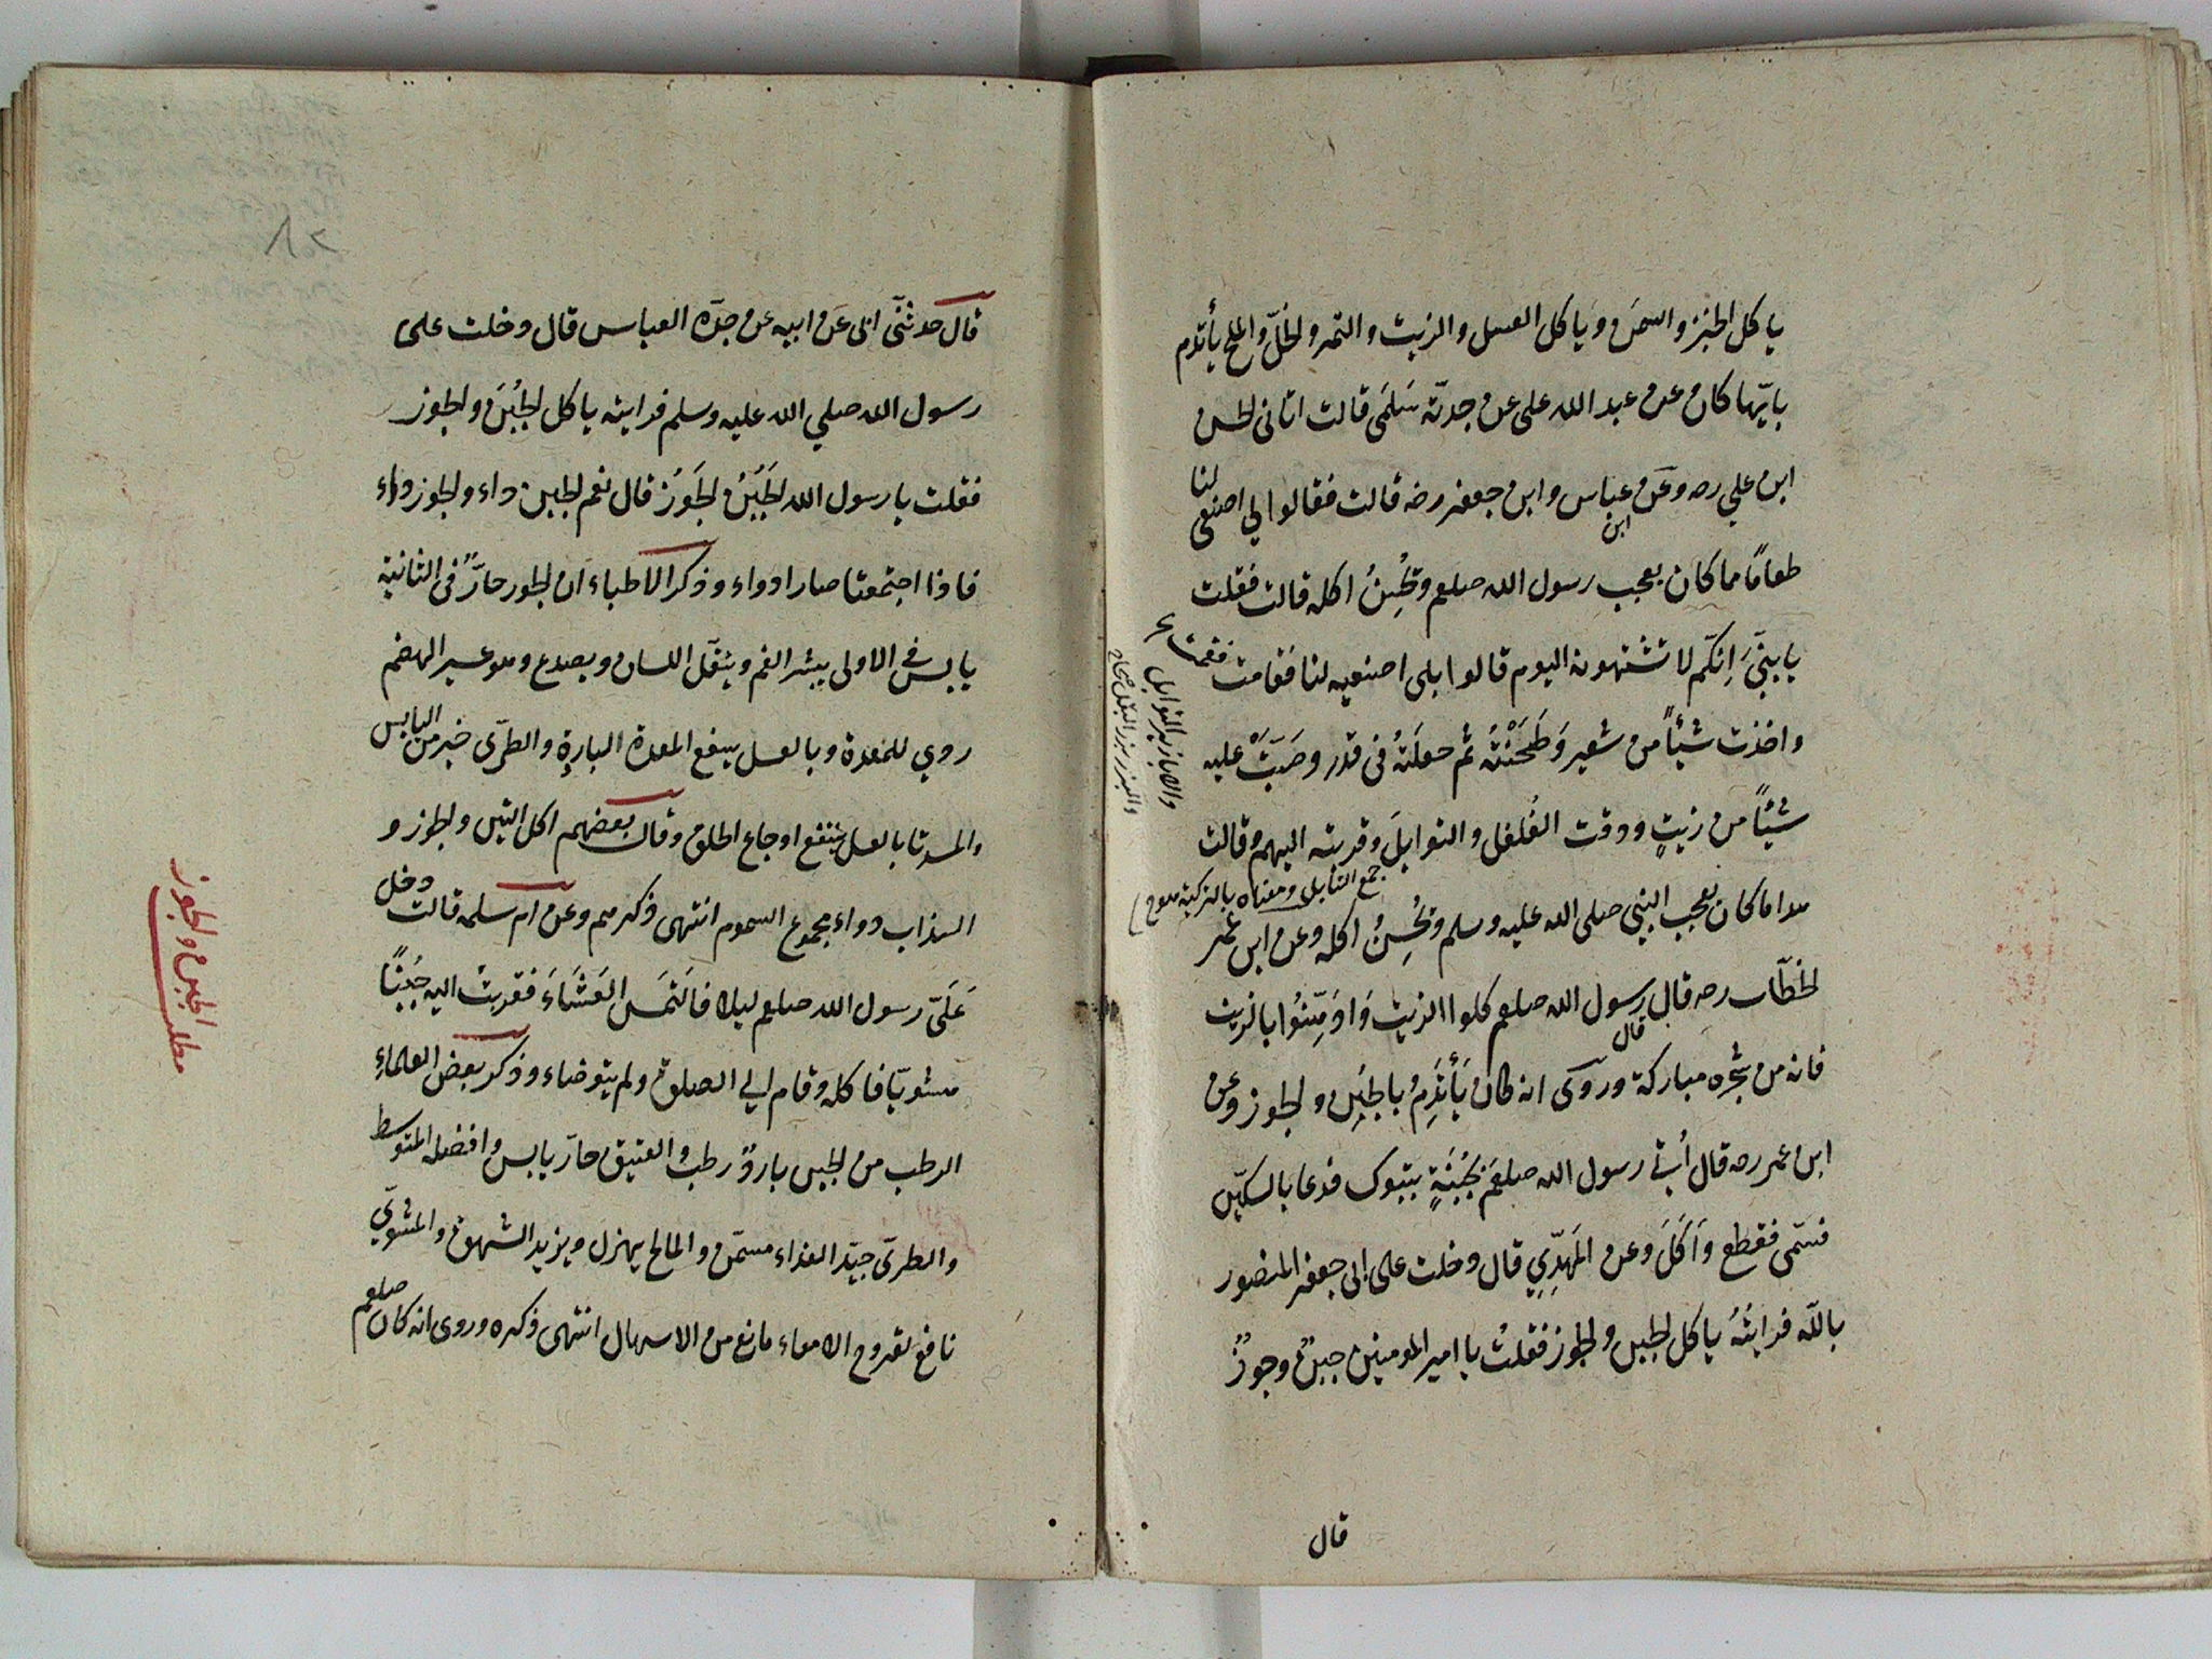 ياكل الخبز والسمن وياكل العسل والزيت والتمر والخلّ والملح يأتدم
بايّها كان عن عبد الله على عن جدته سَلمَى قالت اتانى الحسن
ابن علي رضه وعن ابن عباس وابن جعفر رضه قالت فقالوا لي اصنعى لنا
طعامًا ما كان يعجب رسول الله صلعم ويُحْسِنُ اكله قالت فقلت
يا بنيَّ اِنكم لا تشتهونه اليوم قالوا بلى اصنعيه لنا فقامت
واخذت شيئاً من شعير وَطَحَنْتْه ثم جعلتهُ فى قدر وصَبَتْ عليه
شيئاً من زيتٍ ودقت الفُلفل والتوابلَ وقدبته اليهم وقالت
جمع التابل ومعناه بالتركية
هذا ما كان يعجب النبي صلى الله عليه وسلم ويُحْسِنُ اكله وعن ابن عمر
الخطّاب رضه قال قال رسول الله صلعم كلوا الزيت وَادَّهِنُوا بالزيت
فانه من شجرة مباركة وروى انه كان يَأْتَدِمُ بالجُبن والجوز وعن
ابن عمر رضه قال أُتي رسول الله صلعم بجُبْنَةٍ بتبوك فدعا بالسكين
فسمّى فقطع وَاَكَلَ وعن المَهدِي قال دخلت على ابى جعفر المنصور
بالله فرايتُهُ ياكل الجبن والجوز فقلتُ يا امير المؤمنين جبنٌ وجوزٌ
قال
قال حدثنّى ابى عن ابيه عن جدّه العباس قال دخلت على
رسول الله صلي الله عليه وسلم فرايته ياكل الجُبنَ والجوز
فقلت يا رسول الله الجُبنُ والجَوزُ قال نعم الجبن داء والجوز داء
فاذا اجتمعتا صارا دواء وذكر الاطباء ان الجوز حارٌّ فى الثانية
يابس في الاولى يبثر الفم ويثقل اللسان ويصدع وهو عسير الهضم
روي للمعدة وبالعسل ينفع المعدة الباردة والطرّى خير من اليابس
والمربا بالعسل ينفع اوجاع الحلق وقال بعضهم اكل التين والجوز و
السذاب دواء مجموع السموم انتهى ذكرهم وعن ام سلمه قالت دخل
عَلَىّ رسول الله صلعم ليلا فالتمَس العَشَاءَ فقربت اليه جُبنًا
مشويّا فاكله وقام الي الصلوة ولم يتوضاء وذكر بعض العلماء
الرطب من الجبن باردٌ رطب والعتيق حارّ يابس وافضله المتوسط
والطرىّ جيّد الغذاء مسمّن والمالح يهزل ويزيد الشهوة والمشوي
نافع لقروح الامعاء مانع من الاسهال انتهى ذكره وروى انه كان صلعم
مطلب الجبن والجوز